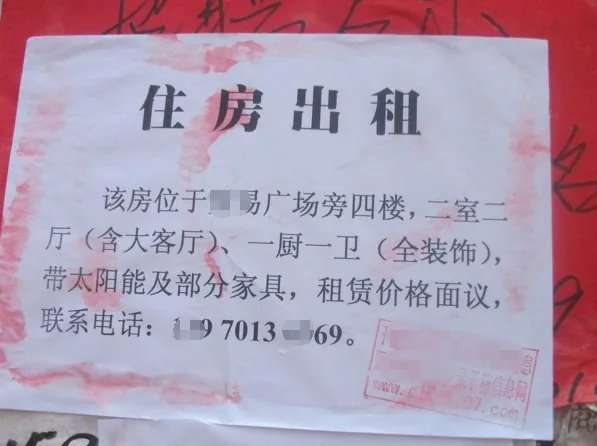 住房出租
该房位于易广场旁四楼，二室二
厅（含大客厅）、一厨一卫（全装饰），
带太阳能及部分家具，租赁价格面议，
联系电话：1 97013 69。
息
信息网
www. 97.com
名